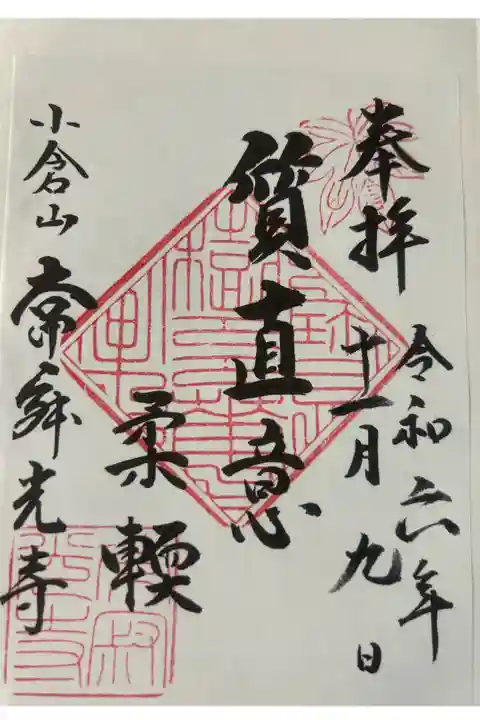 奉拝
令和六年
十一月九日
質直意
柔輭
小倉山
常寂光寺